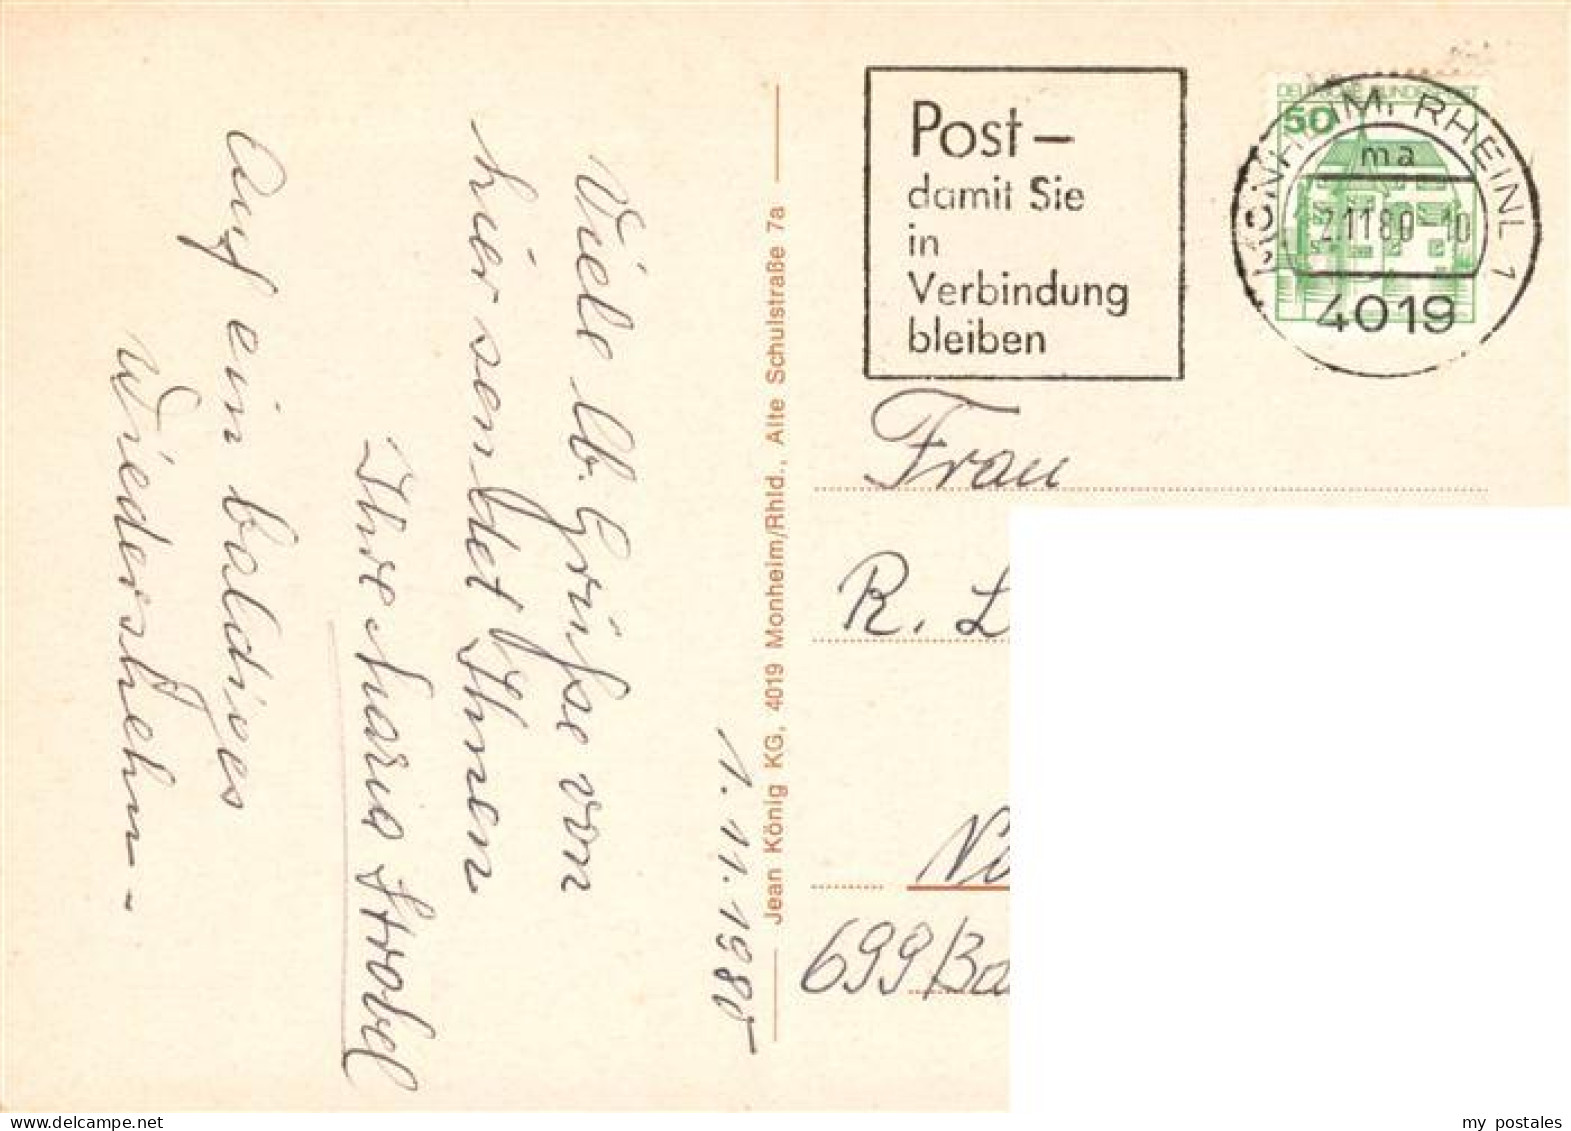 1.11.1980
Viele lb. Grüße von
hier sendet Ihnen
Ihre Maria Strobel
Auf ein baldiges
Wiedersehen -
Jean König KG, 4019 Monheim/Rhld., Alte Schulstraße 7a
Post –
damit Sie
in
Verbindung
bleiben
DEUTSCHE BUNDESPOST
50
MONHEIM, RHEINL 1
ma
2.11.80-10
4019
Frau
R. L
699 Ba
my postales